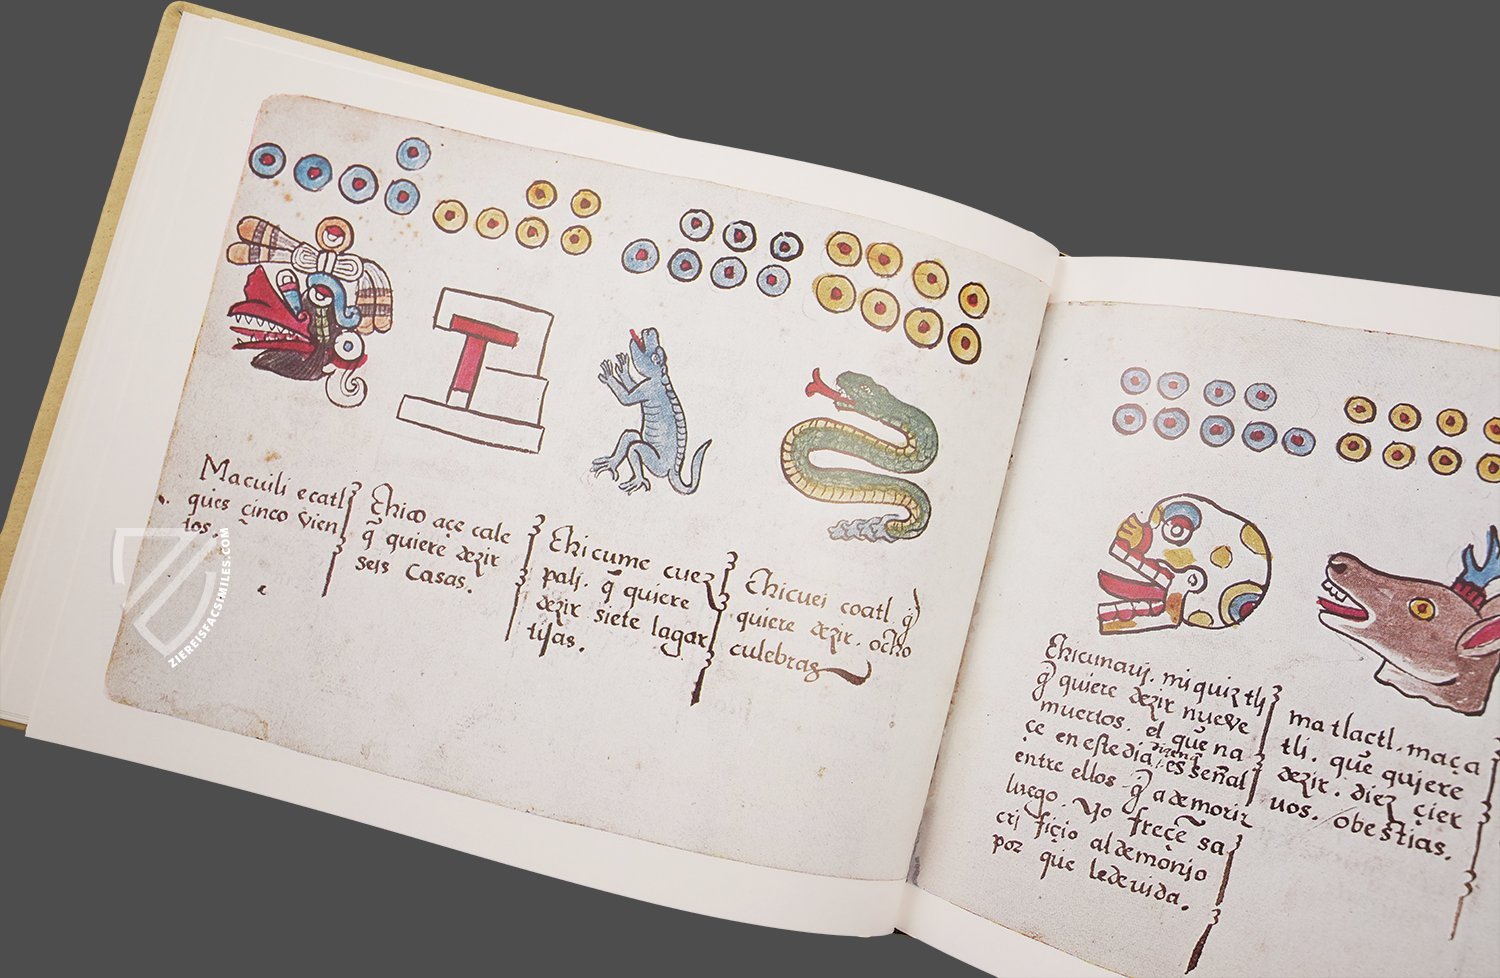 Macuili ecatl
quies çinco vien
tos.
chico açe cale
q̃ quiere dezir
seis casas.
chicume cuez
pali. q̃ quiere
dezir siete lagar
tijas.
chicuei coatl. q̃
quiere dezir. ocho
culebras
chicunauj. miquiztli
q̃ quiere dezir nueve
muertos. el que na
çe en este dia dizen q̃ es señal
entre ellos q̃ a de morir
luego. Yo freçẽ sa
crj fiçio al demonjo
por que le de vida.
matlactl. maça
tli. que qujere
dezir. diez çier
uos. o bestias.
ZIEREISFACSIMILES.COM